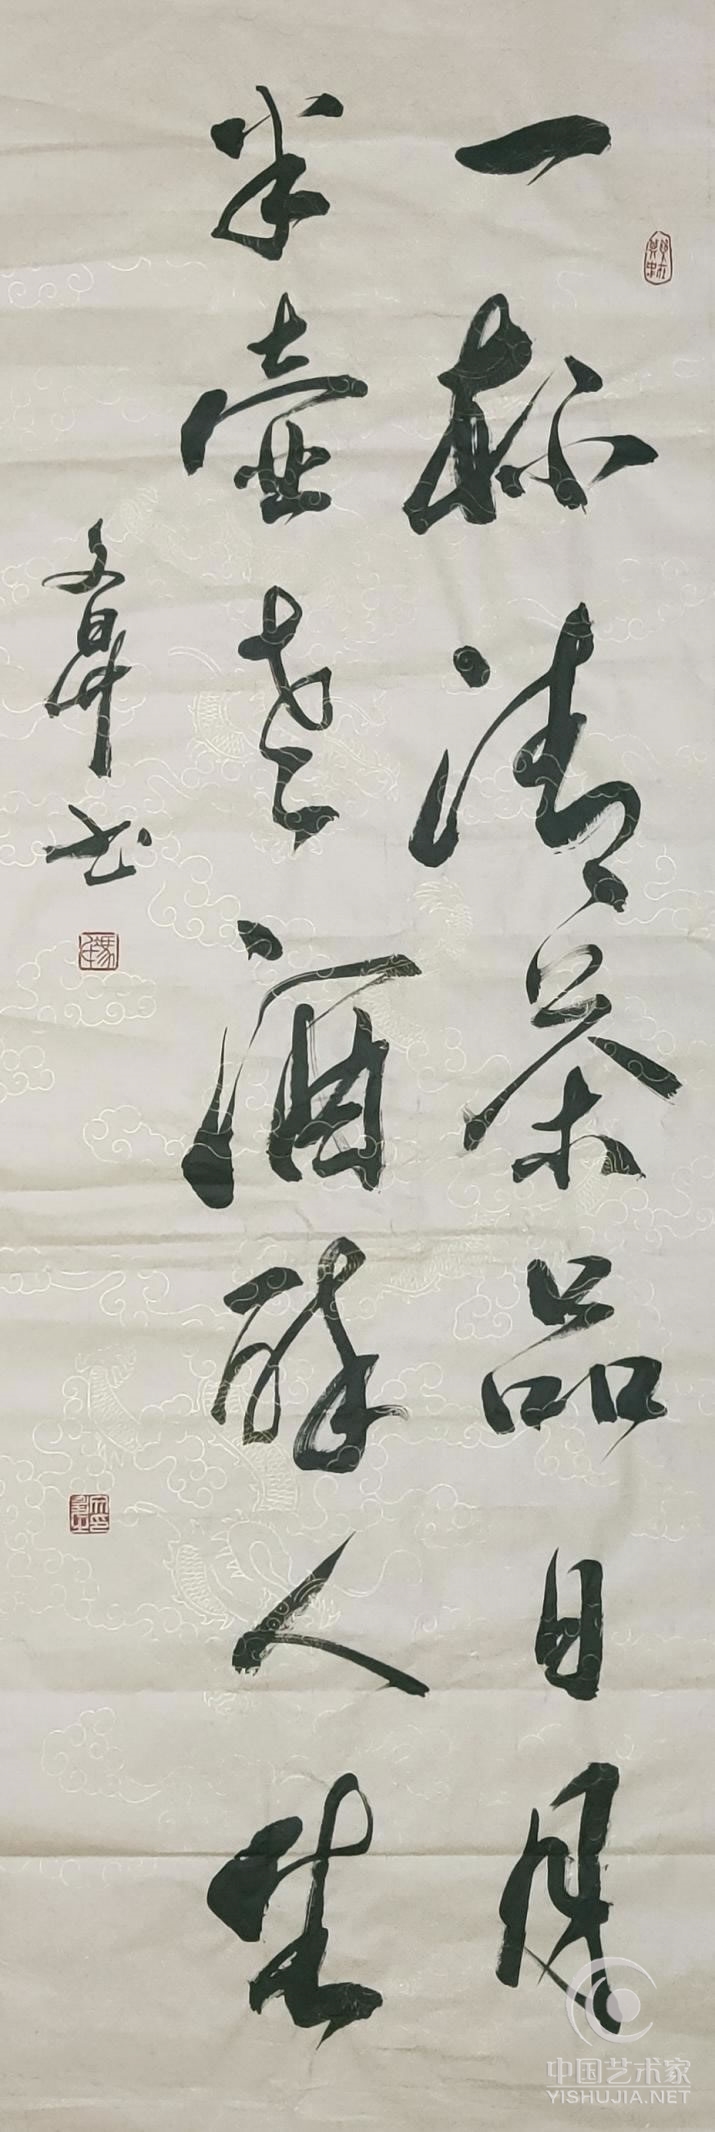 一杯清茶品日月
半壶老酒醉人生
文昇书
中国艺术家
YISHUJIA.NET